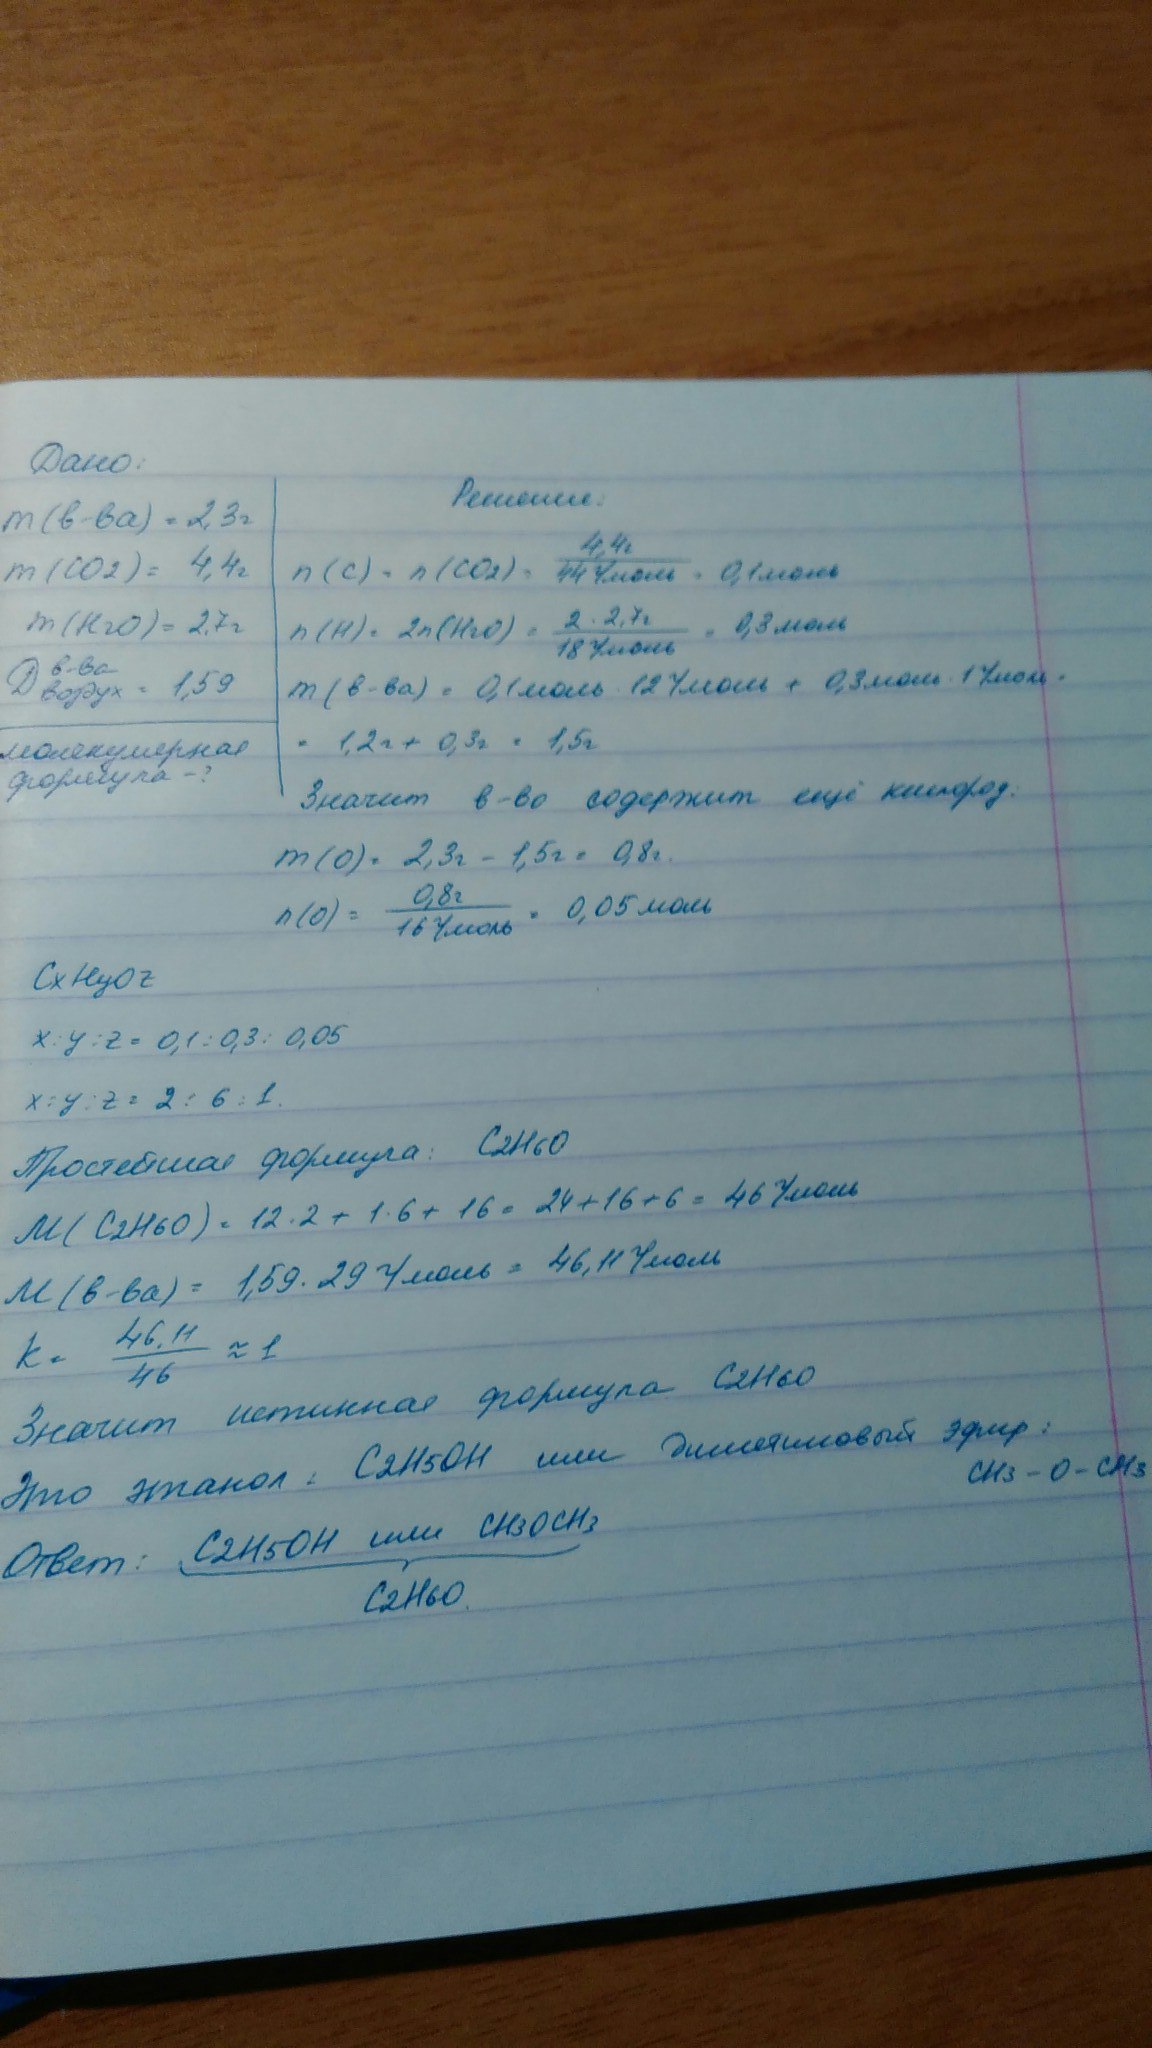 Дано:
m(в-ва) = 2,3г
m(CO2) = 4,4г
m(H2O) = 2,7г
D в-ва воздух = 1,59
молекулярная
формула - ?
Решение:
n(C) = n(CO2) = 4,4г / 44 г/моль = 0,1моль
n(H) = 2n(H2O) = 2 · 2,7г / 18 г/моль = 0,3моль
m(в-ва) = 0,1моль · 12 г/моль + 0,3моль · 1 г/моль =
= 1,2г + 0,3г = 1,5г
Значит в-во содержит ещё кислород.
m(O) = 2,3г - 1,5г = 0,8г.
n(O) = 0,8г / 16 г/моль = 0,05моль
CxHyOz
x : y : z = 0,1 : 0,3 : 0,05
x : y : z = 2 : 6 : 1.
Простейшая формула: C2H6O
M(C2H6O) = 12·2 + 1·6 + 16 = 24+16+6 = 46 г/моль
M(в-ва) = 1,59 · 29 г/моль = 46,11 г/моль
k = 46,11 / 46 ≈ 1
Значит истинная формула C2H6O
Это этанол: C2H5OH или диметиловый эфир:
CH3 - O - CH3
Ответ: C2H5OH или CH3OCH3
C2H6O.